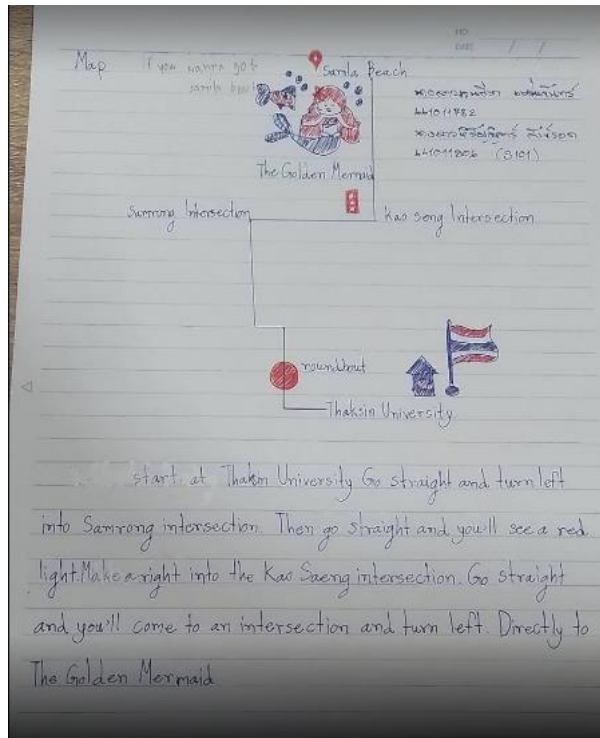 NO
DATE / /
Map If you wanna go to
samila beach
Samila Beach
The Golden Mermaid
Samrong Intersection
Kao seng Intersection
roundbout
Thaksin University
start at Thaksin University Go straight and turn left
into Samrong intersection. Then go straight and you'll see a red
light. Make a right into the Kao Saeng intersection. Go straight
and you'll come to an intersection and turn left. Directly to
The Golden Mermaid